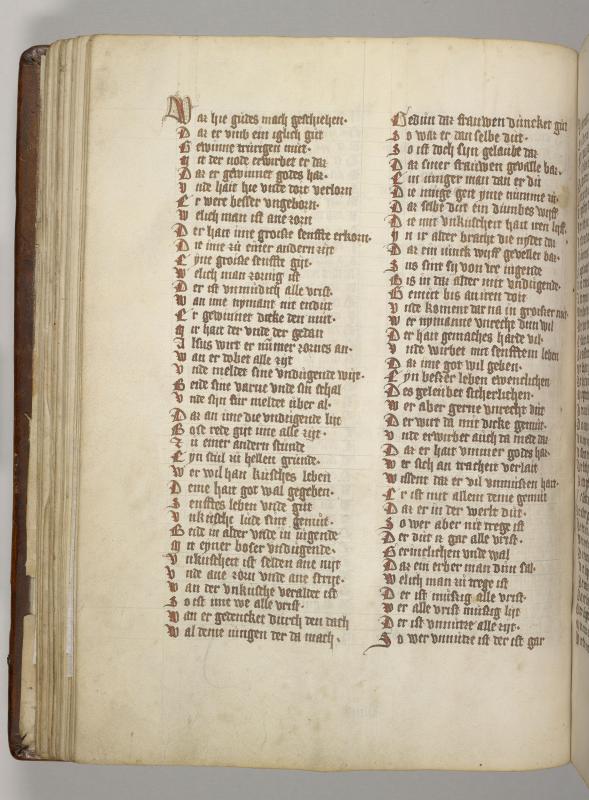 War hie gudes mach geschiehen.
Dar er vmb ein iglich gut
Gewinne trurigen mut.
Mit der node erwirbet er dar
Dar er gewinnet godes har.
Vnde hait hie vnde dort verlorn
Er were besser vngeborn.
Welich man ist ane zorn
Der hait ime groisse senffte erkorn.
Die ime zu einer andern zijt
Eyne groisse senffte gijt.
Welich man zornig ist
Der ist vnmudich alle vrist.
Wan ime nymant nit endut
Er gewinnet dicke den mut.
Mit hait der vnde der gedan
Alsus wirt er nummer zornes an.
Wan er dobet alle zijt
Vnde meldet sine vndugende wijt.
Beide sine varue vnde sin schal
Vnde sijn fur meldet uber al.
Dar an ime die vndugende lijt
Bose rede gijt ime alle zijt.
Zu einer andern stunde
Eyn stul zu hellen grunde.
Wer wil han kusches leben
Deme hait got wal gegeben.
Senfftes leben vnde gut
Vnkusche lude sint gemut.
Beide in alder vnde in iugende
Mit eyner boser vndugende.
Vnkuscheit ist selden ane nijt
Vnde ane zorn vnde ane strijt.
Wan der vnkusche veraldet ist
So ist ime we alle vrist.
Wan er gedencket durch den dach
Wal deme iungen der da mach.
Bedun dar frauwen duncket gut
So war er dan selbe dut.
So ist doch syn gelaube dar
Dar siner frauwen geualle bar.
Ein iunger man dan er du
Die iunge geit yme numme zu.
Dar selbe dut ein dumbes wijff
Die mit vnkuscheit hait iren lijff.
Yn ir alder bracht die nyder dar
Dar ein iunck wijff geuellet bar.
Sus sint sij von ire iugende
Bis in dar alder mit vndugende.
Gemut bis an iren doit
Vnde koment dar na in groisser noit.
Wer nymanne vnrecht dun wil
Der hait gemaches harde vil.
Vnde wirbet mit senfftem leben
Dar ime got wil geben.
Eyn besser leben ewenclichen
Des geleubet sicherlichen.
Wer aber gerne vnrecht dut
Der wirt da mit dicke gemut.
Vnde erwirbet auch da mede dar
Dar er hait vmmer godes har.
Wer sich an tracheit verlait
Wissent dar er vil vnmussen hait.
Er ist mit allem deme gemut
Dar er in der werlt dut.
So wer aber nit trege ist
Der dut iz gar alle vrist.
Gerinclichen vnde wal
Dar ein erber man dun sal.
Welich man zu trege ist
Der ist mussig alle vrist.
Wer alle vrist mussig lijt
Der ist vnnutze alle zijt.
So wer vnnutze ist der ist gar